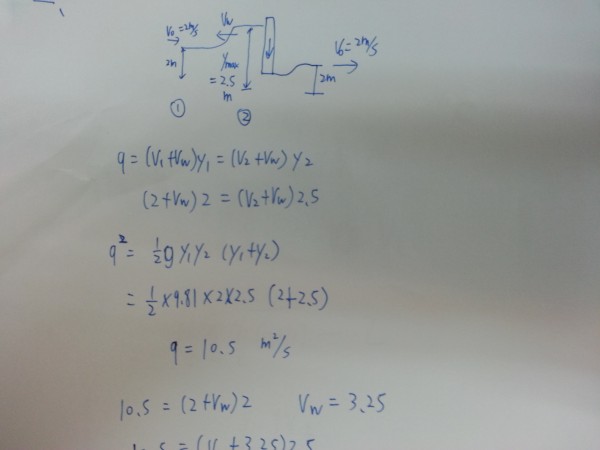 V₀=2m/s Vw V₀=2m/s
2m Ymax = 2.5 m 2m
① ②
q = (V₁+Vw)y₁ = (V₂+Vw) y₂
(2+Vw) 2 = (V₂+Vw) 2.5
q² = ½ g y₁y₂ (y₁+y₂)
= ½ × 9.81 × 2 × 2.5 (2+2.5)
q = 10.5 m²/s
10.5 = (2+Vw) 2 Vw = 3.25